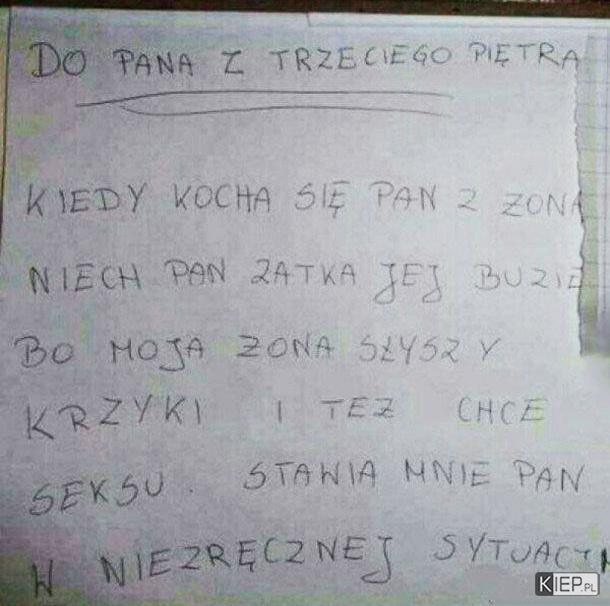 DO PANA Z TRZECIEGO PIĘTRA
KIEDY KOCHA SIĘ PAN Z ZONĄ
NIECH PAN ZATKA JEJ BUZIE
BO MOJA ZONA SŁYSZY
KRZYKI I TEZ CHCE
SEKSU. STAWIA MNIE PAN
W NIEZRĘCZNEJ SYTUACJI
KIEP.PL